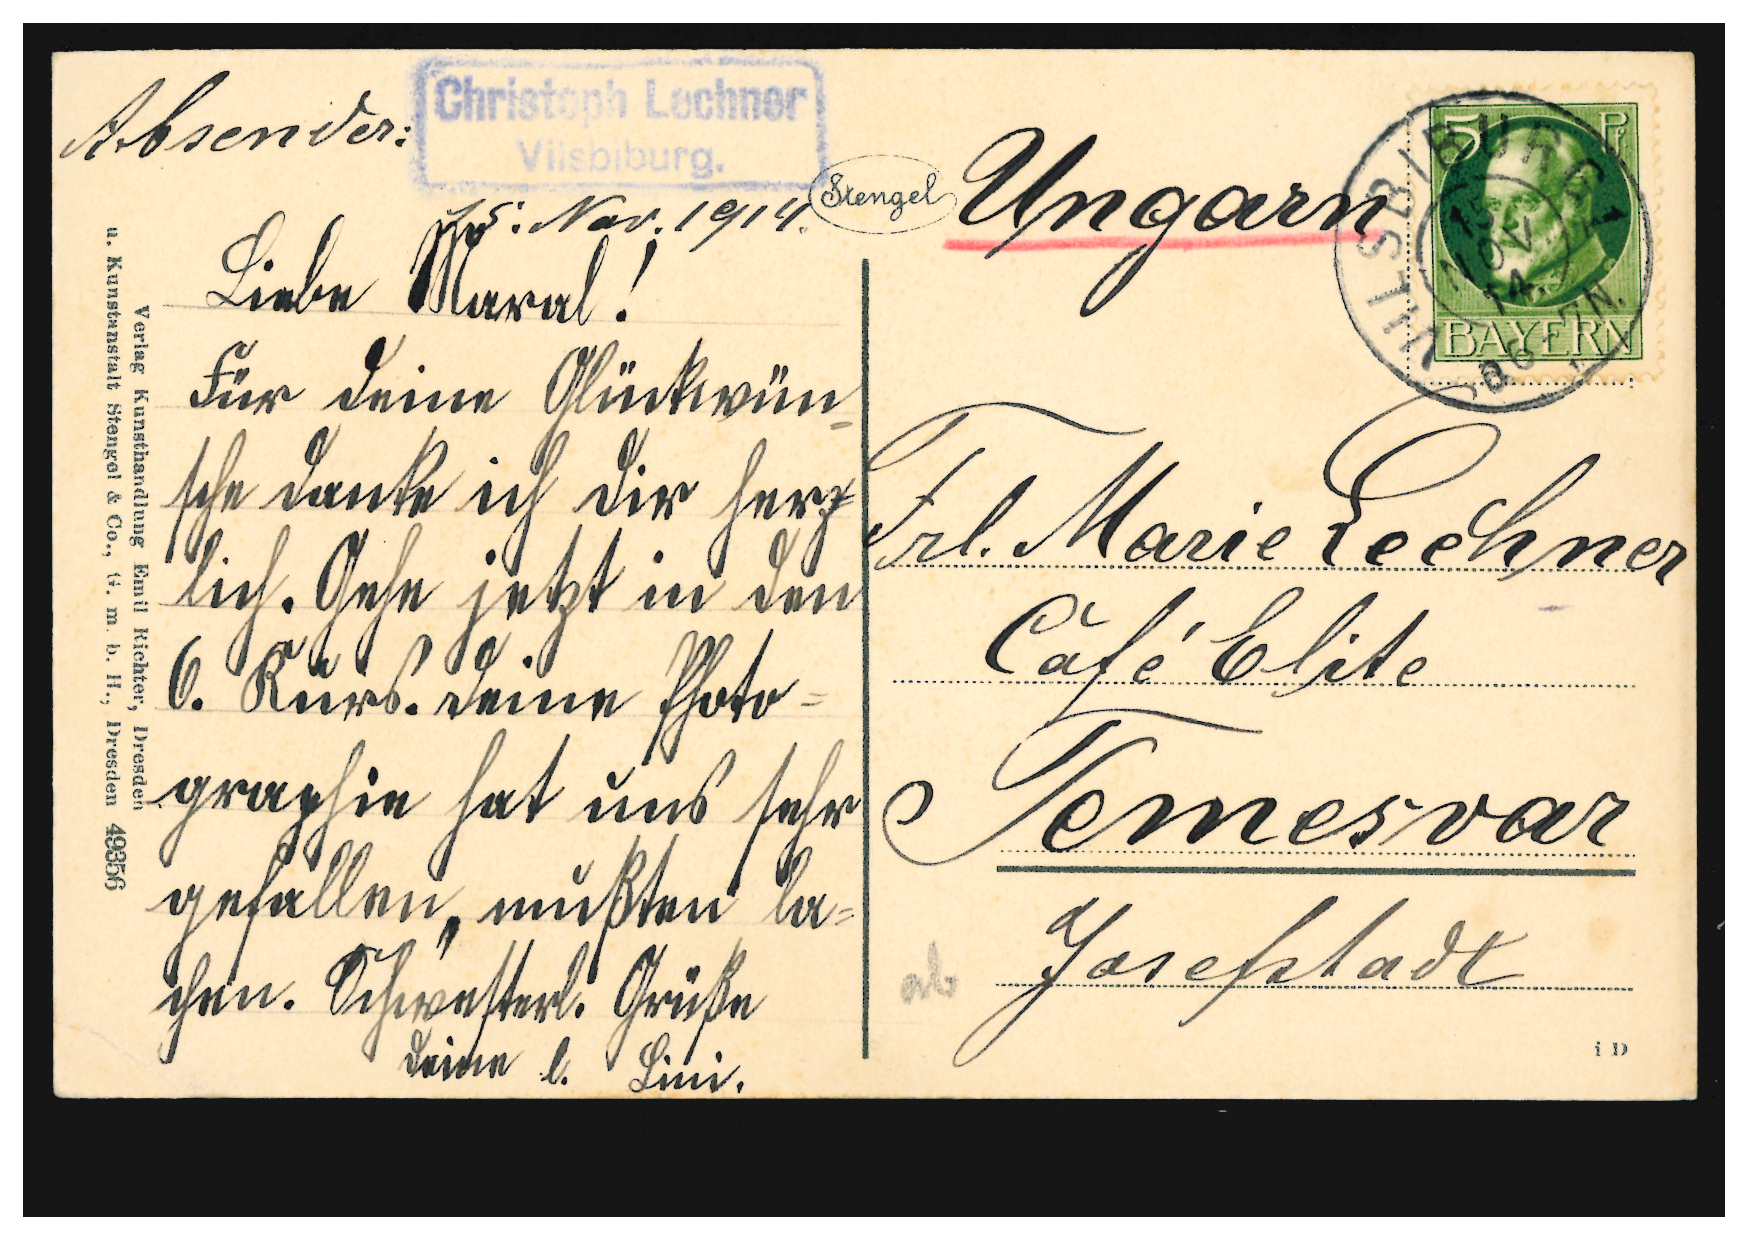 Absender:
Christoph Lechner
Vilsbiburg.
15. Nov. 1914.
Stengel
Ungarn
5 Pf
BAYERN
VILSBIBURG 1
15
NOV
14.
Liebe Maral!
Für deine Glückwün-
sche danke ich dir herz-
lich. Gehe jetzt in den
6. Kurs. Deine Photo-
graphie hat uns sehr
gefallen, mußten la-
chen. Schwesterl. Grüße
deine l. Lini.
Frl. Marie Lechner
Café Elite
Temesvar
Josefstadt
i D
Verlag Kunsthandlung Emil Richter, Dresden
u. Kunstanstalt Stengel & Co., G. m. b. H., Dresden 49356